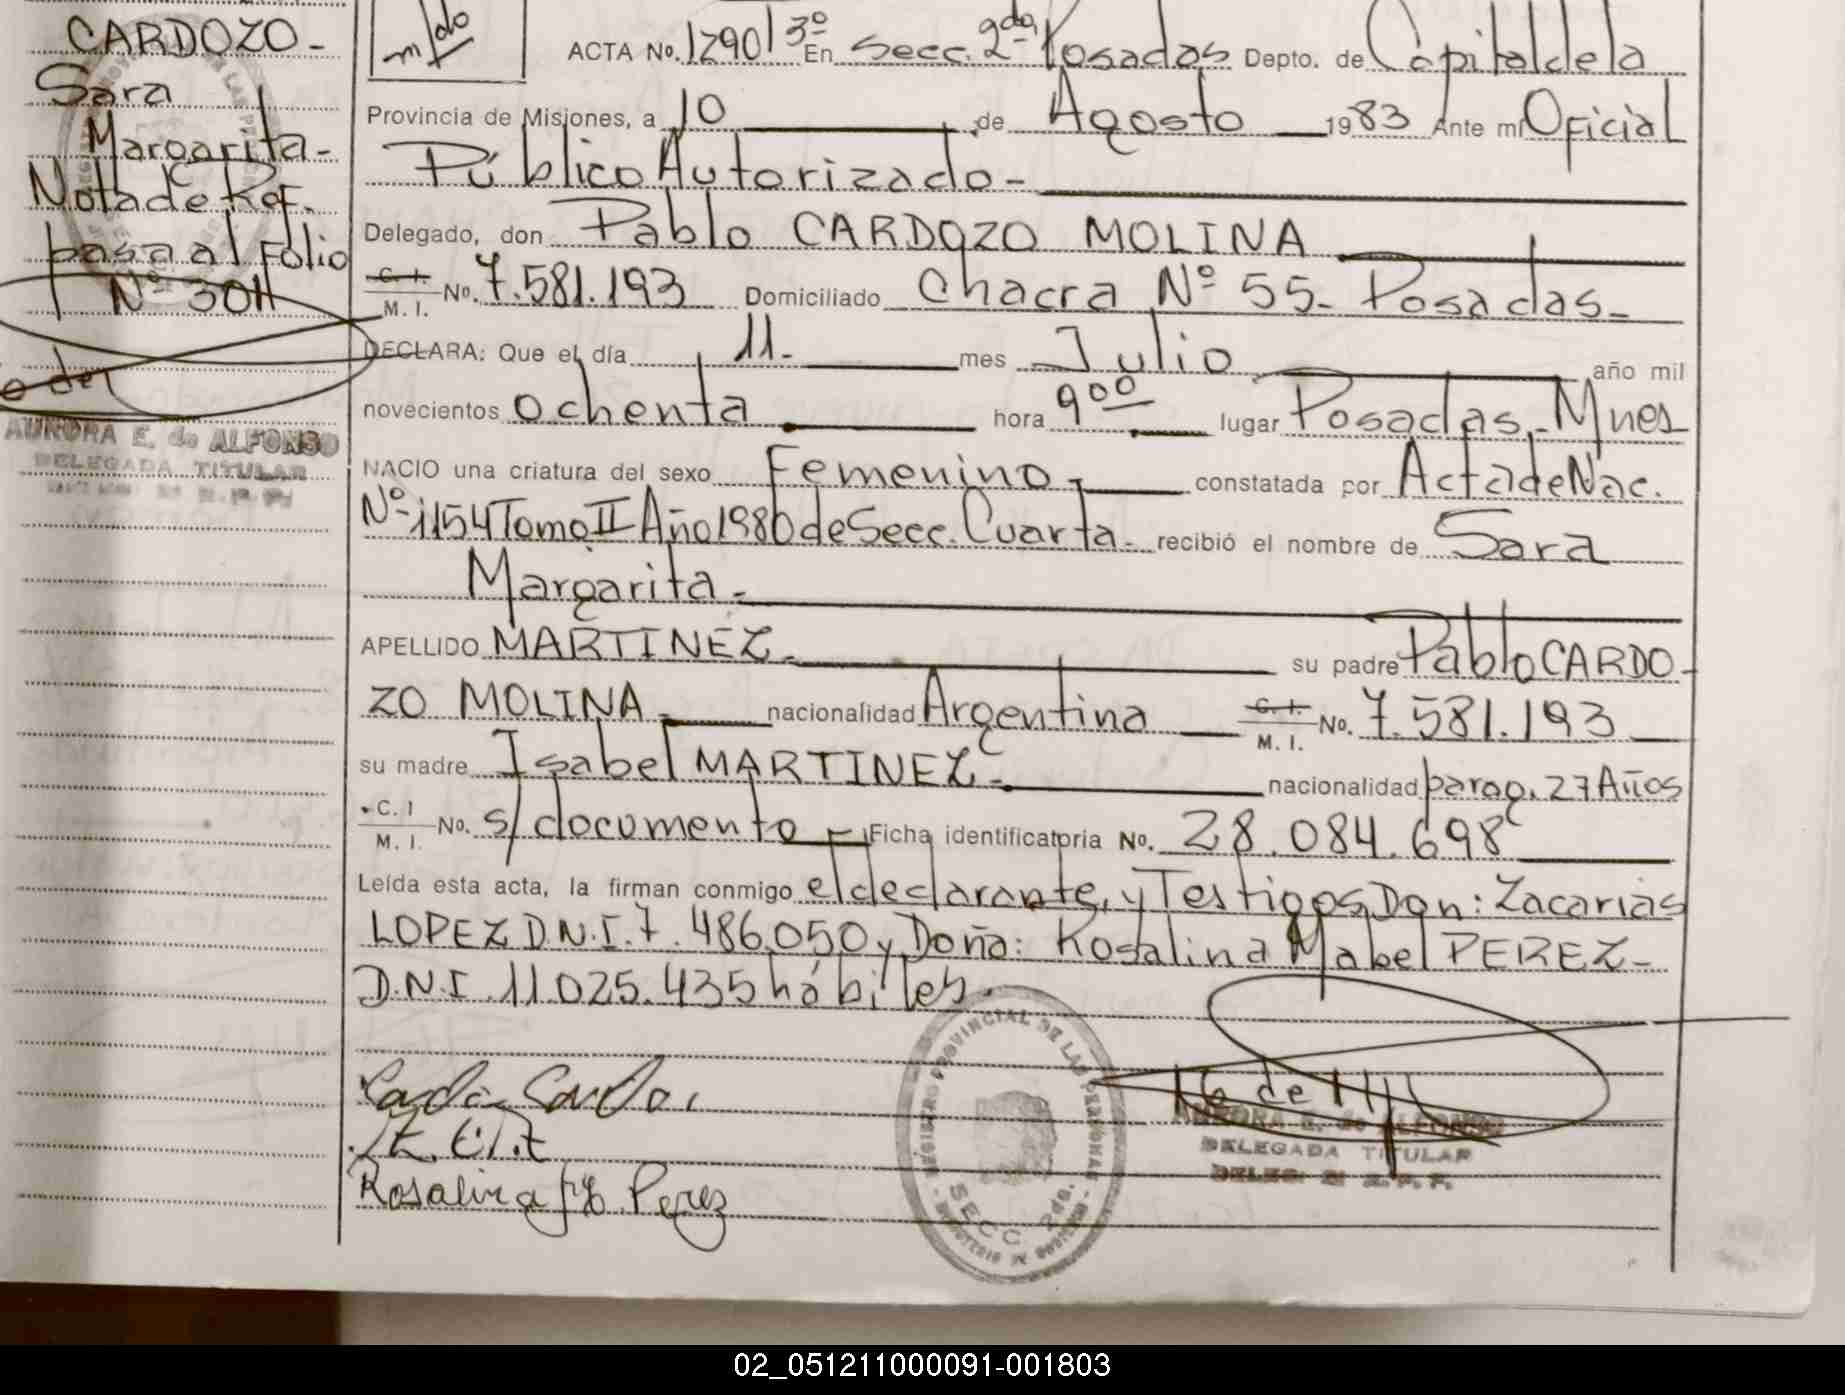 CARDOZO -
Sara
Margarita -
Nota de Ref.
pasa al Folio
Nº 304
AURORA E. de ALFONSO
DELEGADA TITULAR
m/do
ACTA No. 1290 T 3º En Secc. 2da Posadas Depto. de Capital de la
Provincia de Misiones, a 10 de Agosto 1983 Ante mi Oficial
Público Autorizado -
Delegado, don Pablo CARDOZO MOLINA
C. I. M. I. No. 7.581.193 Domiciliado Chacra Nº 55 - Posadas -
DECLARA: Que el día 11 - mes Julio año mil
novecientos ochenta hora 9 00 lugar Posadas, Mnes
NACIO una criatura del sexo Femenino - constatada por Acta de Nac.
Nº 1154 Tomo II Año 1980 de Secc. Cuarta - recibió el nombre de Sara
Margarita -
APELLIDO MARTINEZ - su padre Pablo CARDO-
ZO MOLINA - nacionalidad Argentina C. I. M. I. No. 7.581.193
su madre Isabel MARTINEZ - nacionalidad parag. 27 Años
C. I M. I. No. s/documento - Ficha identificatoria No. 28.084.698
Leída esta acta, la firman conmigo el declarante, y Testigos Don: Zacarias
LOPEZ D.N.I. 7.486.050 y Doña: Rosalina Mabel PEREZ -
D.N.I. 11.025.435 hábiles.
Rosalina M. Perez
REGISTRO PROVINCIAL DE LAS PERSONAS
SECC. 2da.
AURORA E. de ALFONSO
DELEGADA TITULAR
02_051211000091-001803